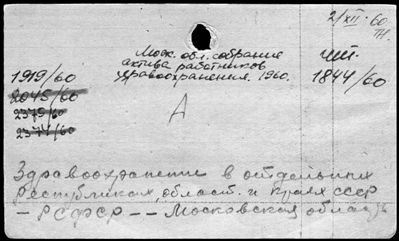 2/XII-60
Моск. обл. собрание
актива работников
здравоохранения. 1960.
1919/60
1844/60
2045/60
2375/60
2374/60
А
Здравоохранение в отдельных
Республиках, област. и краях СССР
- РСФСР - - Московская область